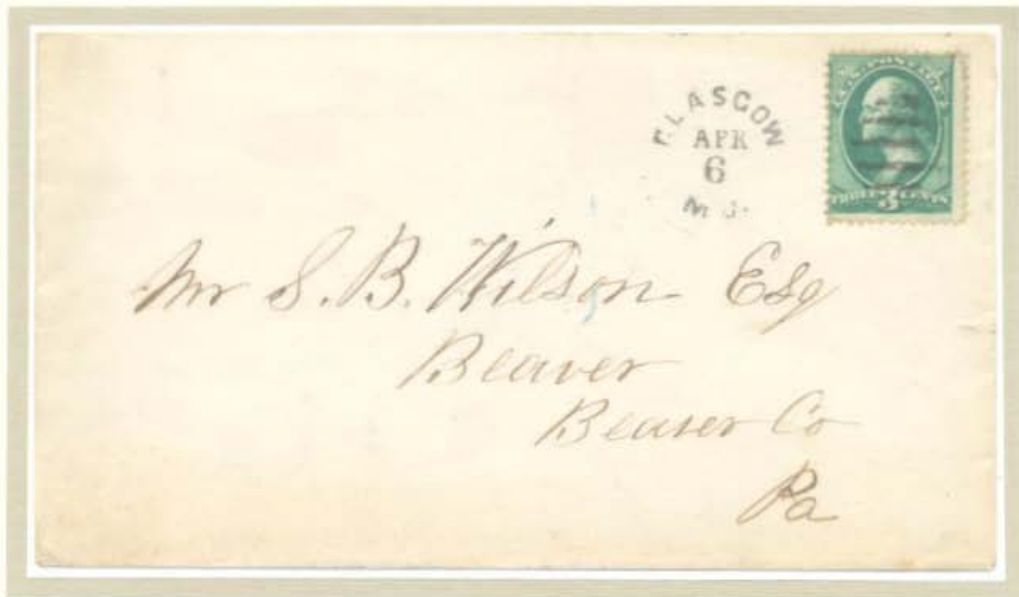 GLASGOW
APR
6
MO.
U.S. POSTAGE
THREE 3 CENTS
Mr S. B. Wilson Esq
Beaver
Beaver Co
Pa